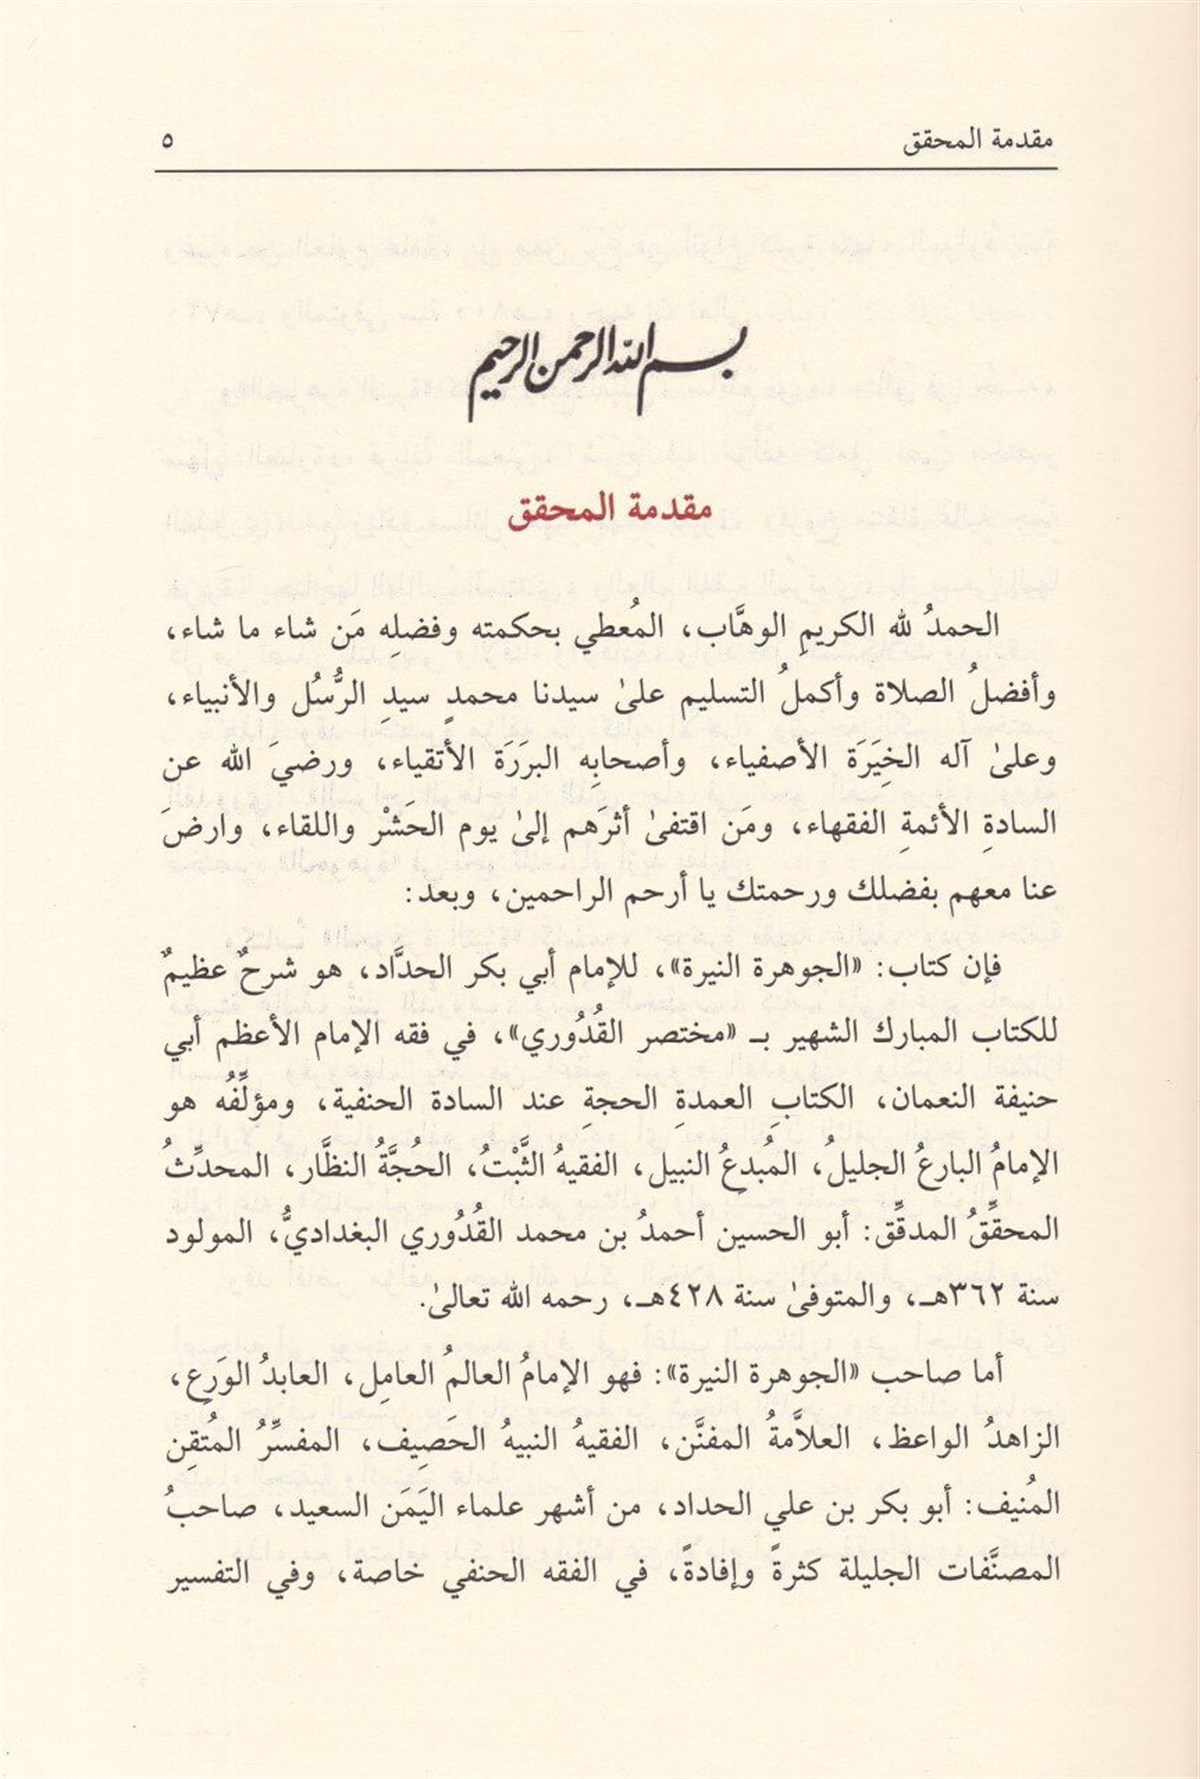 مقدمة المحقق ٥
بسم الله الرحمن الرحيم
مقدمة المحقق
الحمدُ لله الكريمِ الوهَّاب، المُعطي بحكمته وفضلِه مَن شاء ما شاء،
وأفضلُ الصلاة وأكملُ التسليم علىٰ سيدنا محمدٍ سيدِ الرُّسُل والأنبياء،
وعلىٰ آله الخِيَرَة الأصفياء، وأصحابِه البرَرَة الأتقياء، ورضيَ الله عن
السادةِ الأئمةِ الفقهاء، ومَن اقتفىٰ أثرَهم إلىٰ يوم الحَشْر واللقاء، وارضَ
عنا معهم بفضلك ورحمتك يا أرحم الراحمين، وبعد:
فإن كتاب: «الجوهرة النيرة»، للإمام أبي بكر الحدَّاد، هو شرحٌ عظيمٌ
للكتاب المبارك الشهير بـ «مختصر القُدُوري»، في فقه الإمام الأعظم أبي
حنيفة النعمان، الكتابِ العمدةِ الحجةِ عند السادة الحنفية، ومؤلِّفُه هو
الإمامُ البارعُ الجليلُ، المُبدِعُ النبيل، الفقيهُ الثَّبْتُ، الحُجَّةُ النظَّار، المحدِّثُ
المحقِّقُ المدقِّق: أبو الحسين أحمدُ بن محمد القُدُوري البغداديُّ، المولود
سنة ٣٦٢هـ، والمتوفىٰ سنة ٤٢٨هـ، رحمه الله تعالىٰ.
أما صاحب «الجوهرة النيرة»: فهو الإمامُ العالمُ العامِل، العابدُ الوَرِع،
الزاهدُ الواعظ، العلاَّمةُ المفنَّن، الفقيهُ النبيهُ الحَصِيف، المفسِّرُ المُتقِن
المُنيف: أبو بكر بن علي الحداد، من أشهر علماء اليَمَن السعيد، صاحبُ
المصنَّفات الجليلة كثرةً وإفادةً، في الفقه الحنفي خاصة، وفي التفسير